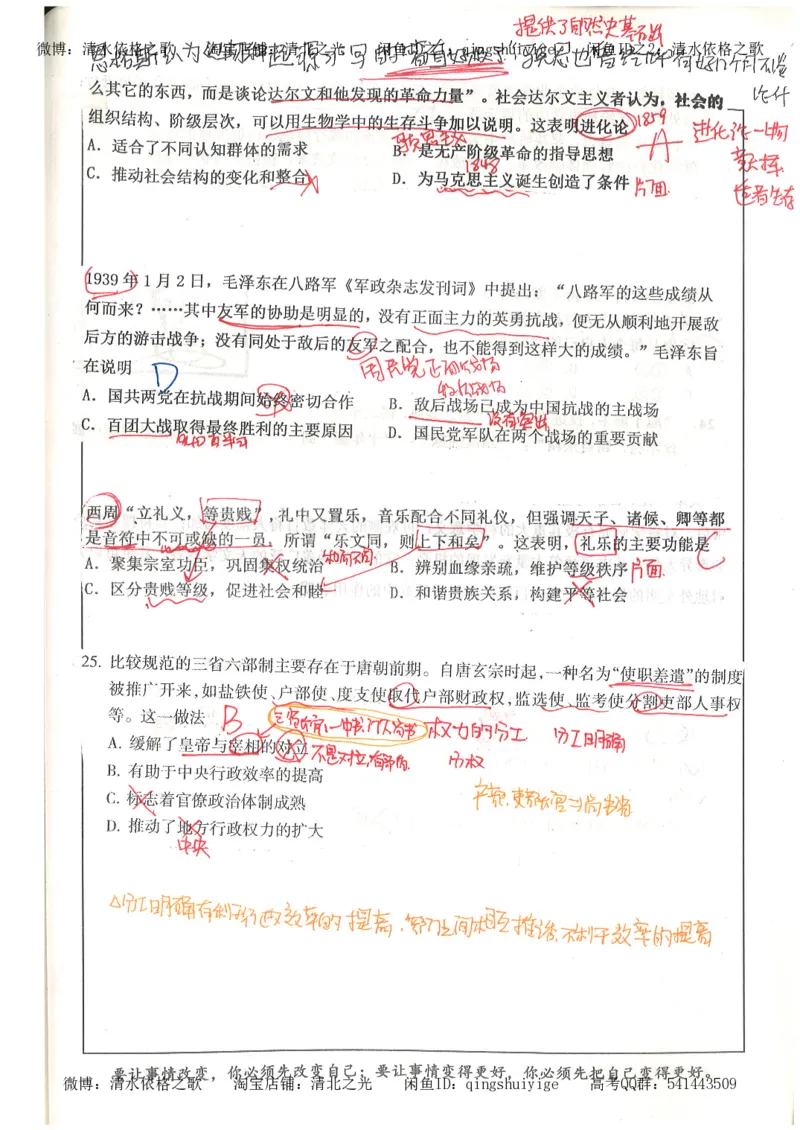 提供了自然史基础
微博：清水依格之歌 淘宝店铺：清北之光 闲鱼ID1：qingshuiyige 闲鱼ID2：清水依格之歌
么其它的东西，而是谈论达尔文和他发现的革命力量”。社会达尔文主义者认为，社会的
组织结构、阶级层次，可以用生物学中的生存斗争加以说明。这表明进化论
1859
A
进化论—物
竞天择
适者生存
A．适合了不同认知群体的需求 B．是无产阶级革命的指导思想
马克思主义
1848
C．推动社会结构的变化和整合 D．为马克思主义诞生创造了条件 片面
1939 年 1 月 2 日，毛泽东在八路军《军政杂志发刊词》中提出：“八路军的这些成绩从
何而来？……其中友军的协助是明显的，没有正面主力的英勇抗战，便无从顺利地开展敌
后方的游击战争；没有同处于敌后的友军之配合，也不能得到这样大的成绩。”毛泽东旨
在说明 D 国民党正面战场
敌后战场
A．国共两党在抗战期间始终密切合作 B．敌后战场已成为中国抗战的主战场
没有突出
C．百团大战取得最终胜利的主要原因 D．国民党军队在两个战场的重要贡献
西周“立礼义，等贵贱”，礼中又置乐，音乐配合不同礼仪，但强调天子、诸候、卿等都
是音符中不可或缺的一员。所谓“乐文同，则上下和矣”。这表明，礼乐的主要功能是 C
A．聚集宗室功臣，巩固集权统治 B．辨别血缘亲疏，维护等级秩序 片面
和而不同
C．区分贵贱等级，促进社会和睦 D．和谐贵族关系，构建平等社会
25. 比较规范的三省六部制主要存在于唐朝前期。自唐玄宗时起，一种名为“使职差遣”的制度
被推广开来，如盐铁使、户部使、度支使取代户部财政权，监选使、监考使分割吏部人事权
等。这一做法 B 权力的分工 分工明确
A. 缓解了皇帝与宰相的对立 分权
B. 有助于中央行政效率的提高
C. 标志着官僚政治体制成熟
D. 推动了地方行政权力的扩大
中央
△分工明确有利于行政效率的提高，部门之间相互推诿，不利于效率的提高
要让事情改变，你必须先改变自己；要让事情变得更好，你必须先把自己变得更好。
微博：清水依格之歌 淘宝店铺：清北之光 闲鱼ID：qingshuiyige 高考QQ群：541443509